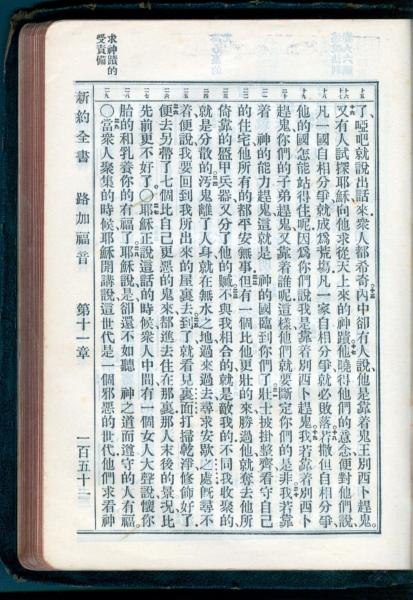 了、啞吧就說出話來、衆人都希奇、內中卻有人說、他是靠着鬼王別西卜趕鬼、
又有人試探耶穌、向他求從天上來的神蹟、他曉得他們的意念、便對他們說、
凡一國自相分爭、就成爲荒場、凡一家自相分爭、就必敗落、若撒但自相分爭、
他的國怎能站得住呢、因爲你們說我是靠着別西卜趕鬼、我若靠着別西卜
趕鬼、你們的子弟趕鬼、又靠着誰呢、這樣、他們就要斷定你們的是非、我若靠
着　神的能力趕鬼、這就是　神的國臨到你們了、壯士披掛整齊、看守自己
的住宅、他所有的都平安無事、但有一個比他更壯的來、勝過他、就奪去他所
倚靠的盔甲兵器、又分了他的贓、不與我相合的、就是敵我的、不同我收聚的、
就是分散的、污鬼離了人身、就在無水之地、過來過去、尋求安歇之處、旣尋不
着、便說、我要回到我所出來的屋裏去、到了、就看見裏面打掃乾淨、修飾好了、
便去另帶了七個比自己更惡的鬼來、都進去住在那裏、那人末後的景況、比
先前更不好了。○耶穌正說這話的時候、衆人中間、有一個女人大聲說、懷你
胎的和乳養你的有福了、耶穌說、是、卻還不如聽　神之道而遵守的人有福。
○當衆人聚集的時候、耶穌開講說、這世代是一個邪惡的世代、他們求看神
求神蹟的
受責備
新約全書　路加福音　第十一章　一百五十二